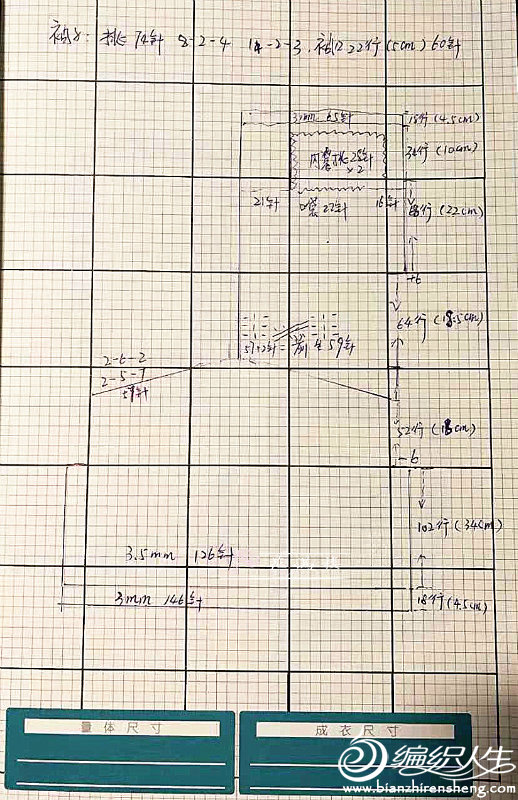 袖: 挑74针 8-2-4 14-2-3. 袖口22行(5cm)60针
3mm 65针
18行(4.5cm)
内袋挑28针
×2
36行(10cm)
21针 口袋27针 16针
行(22cm)
+6
64行(18.5cm)
57+2针=前片59针
2-6-2
2-5-7
59针
52行(18cm)
-6
102行(34cm)
3.5mm 126针
3mm 146针
18行(4.5cm)
量体尺寸
成衣尺寸
编织人生
www.bianzhirensheng.com